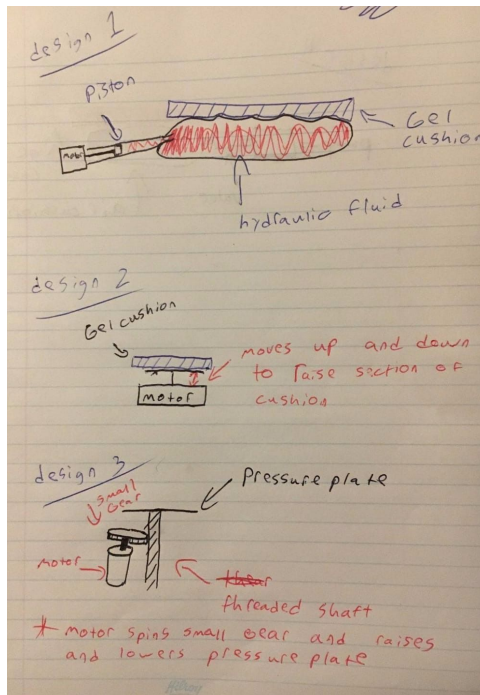 design 1
Piston
motor
Gel
cushion
hydraulic fluid
design 2
Gel cushion
moves up and down
to raise section of
cushion
motor
design 3
small
Gear
Pressure plate
motor
threaded shaft
* motor spins small Gear and raises
and lowers pressure plate